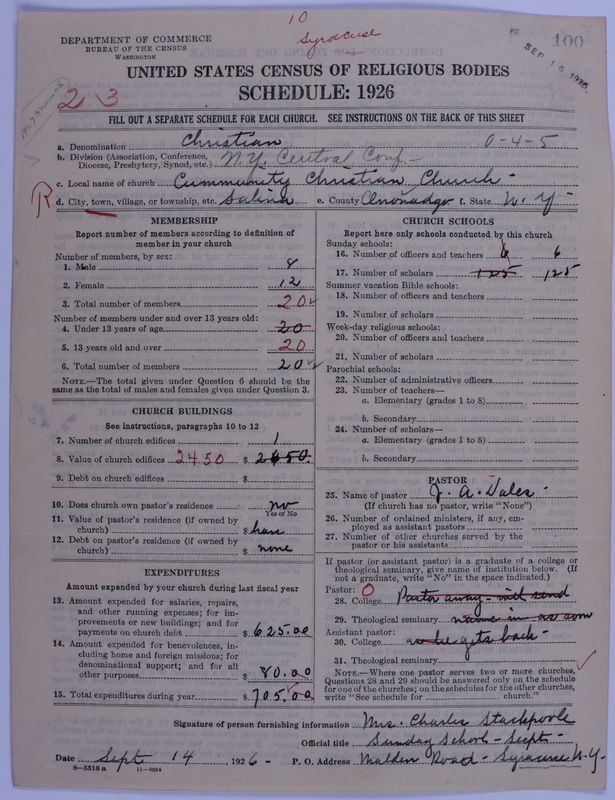 10
Syracuse
100
SEP 16 1926
DEPARTMENT OF COMMERCE
BUREAU OF THE CENSUS
WASHINGTON
UNITED STATES CENSUS OF RELIGIOUS BODIES
SCHEDULE: 1926
2 3
FILL OUT A SEPARATE SCHEDULE FOR EACH CHURCH. SEE INSTRUCTIONS ON THE BACK OF THIS SHEET
a. Denomination Christian 0-4-5
b. Division (Association, Conference, Diocese, Presbytery, Synod, etc.) N.Y. Central Conf.
c. Local name of church Community Christian Church
R
d. City, town, village, or township, etc. Salina e. County Onondaga f. State N.Y.
MEMBERSHIP
Report number of members according to definition of
member in your church
Number of members, by sex:
1. Male 8
2. Female 12
3. Total number of members 20
Number of members under and over 13 years old:
4. Under 13 years of age 20
5. 13 years old and over 20
6. Total number of members 20
NOTE.—The total given under Question 6 should be
same as the total of males and females given under Question 3.
CHURCH BUILDINGS
See instructions, paragraphs 10 to 12
7. Number of church edifices 1
8. Value of church edifices 2450 $
9. Debt on church edifices $
10. Does church own pastor's residence no
Yes or No
11. Value of pastor's residence (if owned by
church) $
12. Debt on pastor's residence (if owned by
church) $ none
EXPENDITURES
Amount expended by your church during last fiscal year
13. Amount expended for salaries, repairs,
and other running expenses; for im-
provements or new buildings; and for
payments on church debt $ 625.00
14. Amount expended for benevolences, in-
cluding home and foreign missions; for
denominational support; and for all
other purposes $ 80.00
15. Total expenditures during year $ 705.00
CHURCH SCHOOLS
Report here only schools conducted by this church
Sunday schools:
16. Number of officers and teachers 6 6
17. Number of scholars 125 125
Summer vacation Bible schools:
18. Number of officers and teachers
19. Number of scholars
Week-day religious schools:
20. Number of officers and teachers
21. Number of scholars
Parochial schools:
22. Number of administrative officers
23. Number of teachers—
a. Elementary (grades 1 to 8)
b. Secondary
24. Number of scholars—
a. Elementary (grades 1 to 8)
b. Secondary
PASTOR
25. Name of pastor J. A. Dales
(If church has no pastor, write "None")
26. Number of ordained ministers, if any, em-
ployed as assistant pastors
27. Number of other churches served by the
pastor or his assistants
If pastor (or assistant pastor) is a graduate of a college or
theological seminary, give name of institution below. (If
not a graduate, write "No" in the space indicated.)
Pastor: 0
28. College Pastor away - will send
29. Theological seminary name in as soon
Assistant pastor:
30. College as he gets back -
31. Theological seminary
NOTE.—Where one pastor serves two or more churches,
Questions 28 and 29 should be answered only on the schedule
for one of the churches; on the schedules for the other churches,
write "See schedule for church."
Signature of person furnishing information Mrs. Charles Stackpoole
Official title Sunday School - Supt -
Date Sept 14, 1926 - P. O. Address Malden Road - Syracuse N.Y.
8—5518 a 11—9064